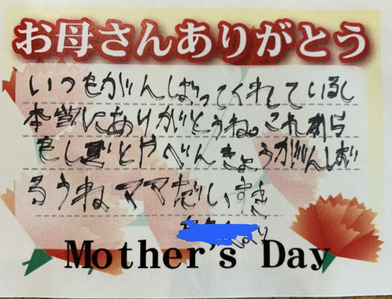 お母さんありがとう
いつもがんばってくれているし
本当にありがとうね。これから
もしごとやべんきょうがんば
るうね ママだいすき
より
Mother's Day